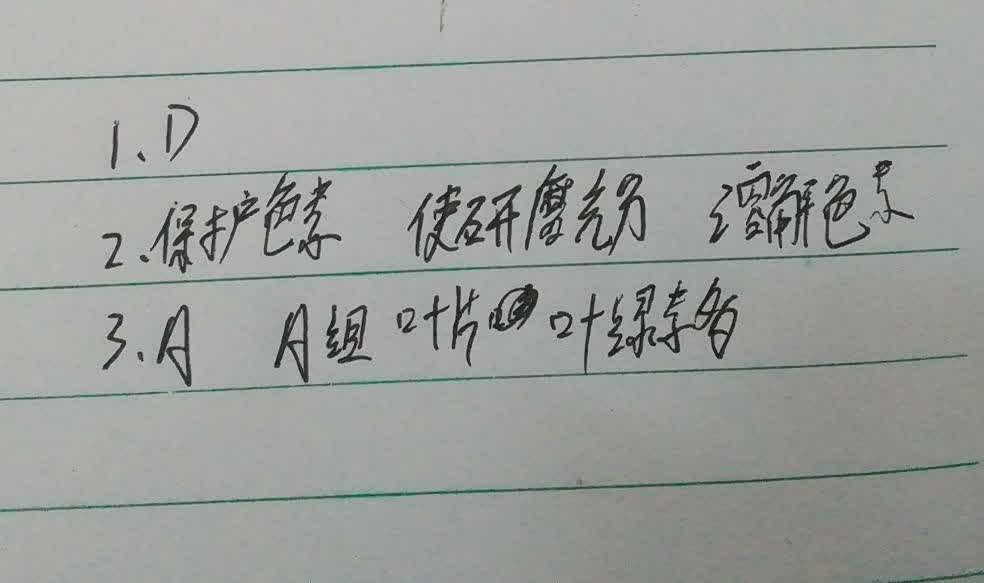 1、D
2、保护色素 使研磨充分 溶解色素
3、A A组叶片叶绿素多